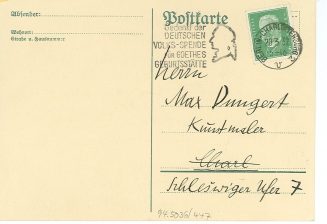 Absender:
Wohnort:
Straße u. Hausnummer:
Postkarte
Gedenkt der
DEUTSCHEN
VOLKS-SPENDE
FÜR GOETHES
GEBURTSSTÄTTE
Herrn
Max Dungert
Kunstmaler
Charl.
Schleswiger Ufer 7
94.5036/447